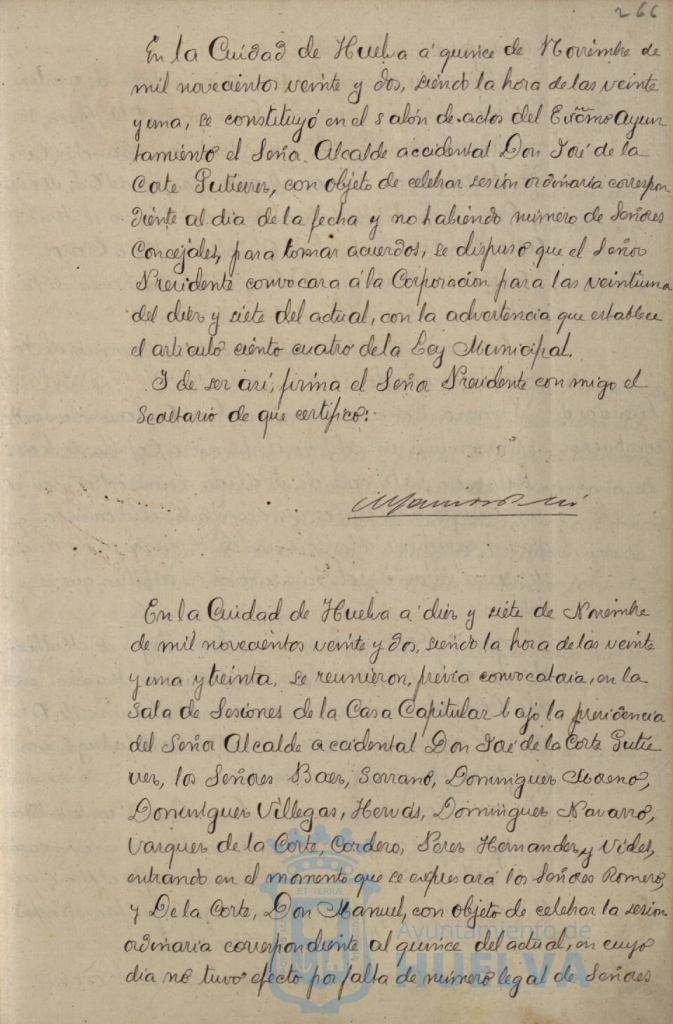 266
En la Cuidad de Huelva á quince de Noviembre de
mil novecientos veinte y dos, siendo la hora de las veinte
y una, se constituyó en el salón de actos del Excmo Ayun
tamiento el Señor Alcalde accidental Don José de la
Corte Gutierres, con objeto de celebrar sesion ordinaria correspon
diente al dia de la fecha y no habiendo número de Señores
Concejales, para tomar acuerdos, se dispuso que el Señor
Presidente convocara á la Corporacion para las veintiuna
del dies y siete del actual, con la advertencia que establece
el articulo ciento cuatro de la Ley Municipal.
I de ser asi, firma el Señor Presidente con migo el
Secretario de que certifico:
En la Cuidad de Huelva a dies y siete de Noviembre
de mil novecientos veinte y dos, siendo la hora de las veinte
y una y treinta, se reunieron, previa convocatoria, en la
Sala de Sesiones de la Casa Capitular bajo la presidencia
del Señor Alcalde accidental Don José de la Corte Gutie
rres, los Señores Baes, Serrano, Domingues Moreno,
Domingues Villegas, Hervás, Domingues Navarro,
Varques de la Corte, Cordero, Peres Hernandes y Vides,
entrando en el momento que se expresará los Señores Romero,
y De la Corte, Don Manuel, con objeto de celebrar la sesion
ordinaria correspondiente al quince del actual, en cuyo
dia no tuvo efecto por falta de número legal de Señores
ET TERRÆ
Ayuntamiento de
HUELVA